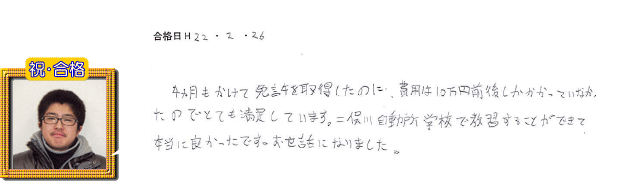 合格日 H 22 ・ 2 ・ 26
祝・合格
4ヵ月もかけて免許を取得したのに、費用は10万円前後しかかかっていなかっ
たのでとても満足しています。二俣川自動所学校で教習することができて
本当に良かったです。お世話になりました。